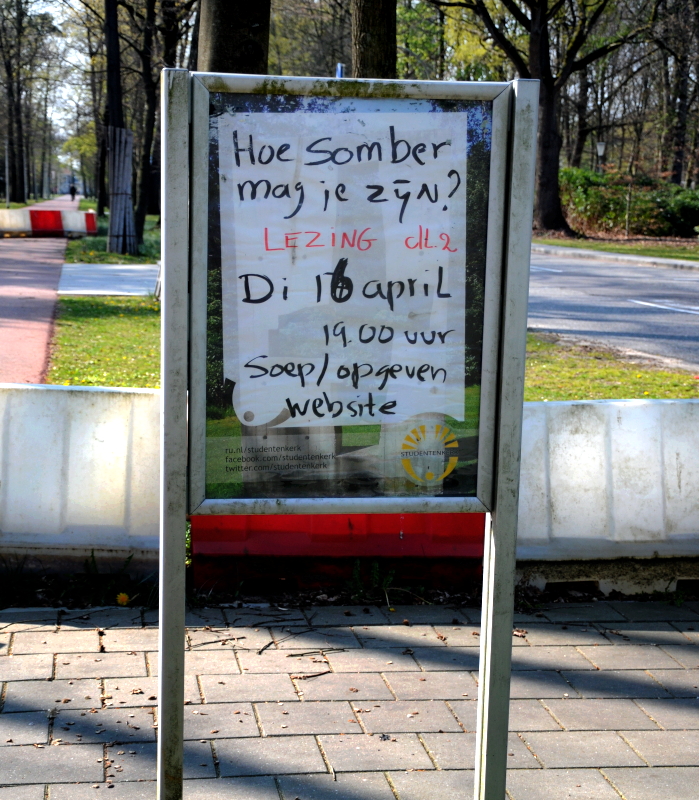 Hoe Somber
mag je zijn?
LEZING dl.2
Di 16 april
19.00 uur
Soep/opgeven
website
ru.nl/studentenkerk
facebook.com/studentenkerk
twitter.com/studentenkerk
STUDENTENK